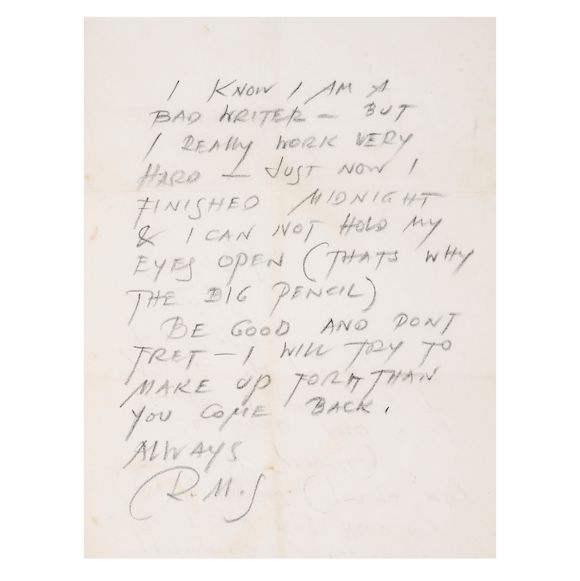 I KNOW I AM A
BAD WRITER — BUT
I REALLY WORK VERY
HARD — JUST NOW I
FINISHED MIDNIGHT
& I CAN NOT HOLD MY
EYES OPEN (THATS WHY
THE BIG PENCIL)
BE GOOD AND DONT
FRET — I WILL TRY TO
MAKE UP FOR IT THAN
YOU COME BACK.
ALWAYS
(R.M.S